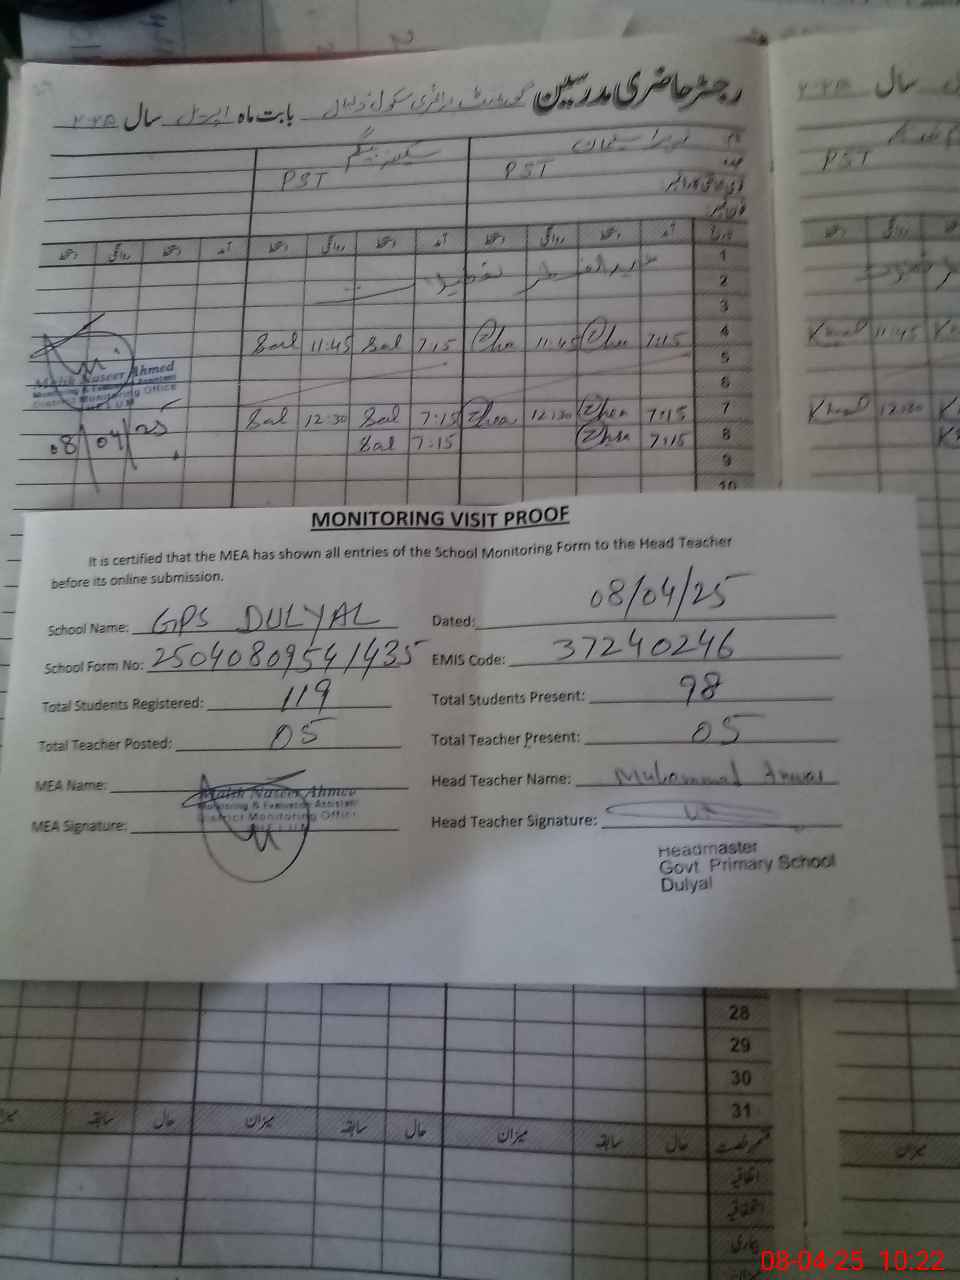 رجسٹر حاضری مدرسین گورنمنٹ پرائمری سکول دلیال بابت ماہ اپریل سال ۲۰۲۵
سال ۲۰۲۵
نام
عہدہ PST PST
PST
تاریخ آمد دستخط روانگی دستخط آمد دستخط روانگی دستخط آمد دستخط روانگی دستخط
1 عید الفطر تعطیلات
2
3
4 7:15 11:45 7:15 Sal 11:45 Sal
11:45
5
6
7 7:15 12:30 7:15 Sal 12:30 Sal
12:30
8 7:15 7:15 Sal
9
10
Malik Naseer Ahmed
Monitoring & Evaluation Assistant
District Monitoring Office
JHELUM
08/04/25
MONITORING VISIT PROOF
It is certified that the MEA has shown all entries of the School Monitoring Form to the Head Teacher
before its online submission.
School Name: GPS DULYAL Dated: 08/04/25
School Form No: 25040809541435 EMIS Code: 37240246
Total Students Registered: 119 Total Students Present: 98
Total Teacher Posted: 05 Total Teacher Present: 05
MEA Name: Malik Naseer Ahmed Head Teacher Name: Muhammad Anwar
Monitoring & Evaluation Assistant
District Monitoring Office
JHELUM
MEA Signature: Head Teacher Signature:
Headmaster
Govt. Primary School
Dulyal
28
29
30
31
قسم رخصت حال سابقہ میزان حال سابقہ میزان حال سابقہ میزان
میزان
اتفاقیہ
استحقاقیہ
بیماری
میزان
08-04-25 10:22